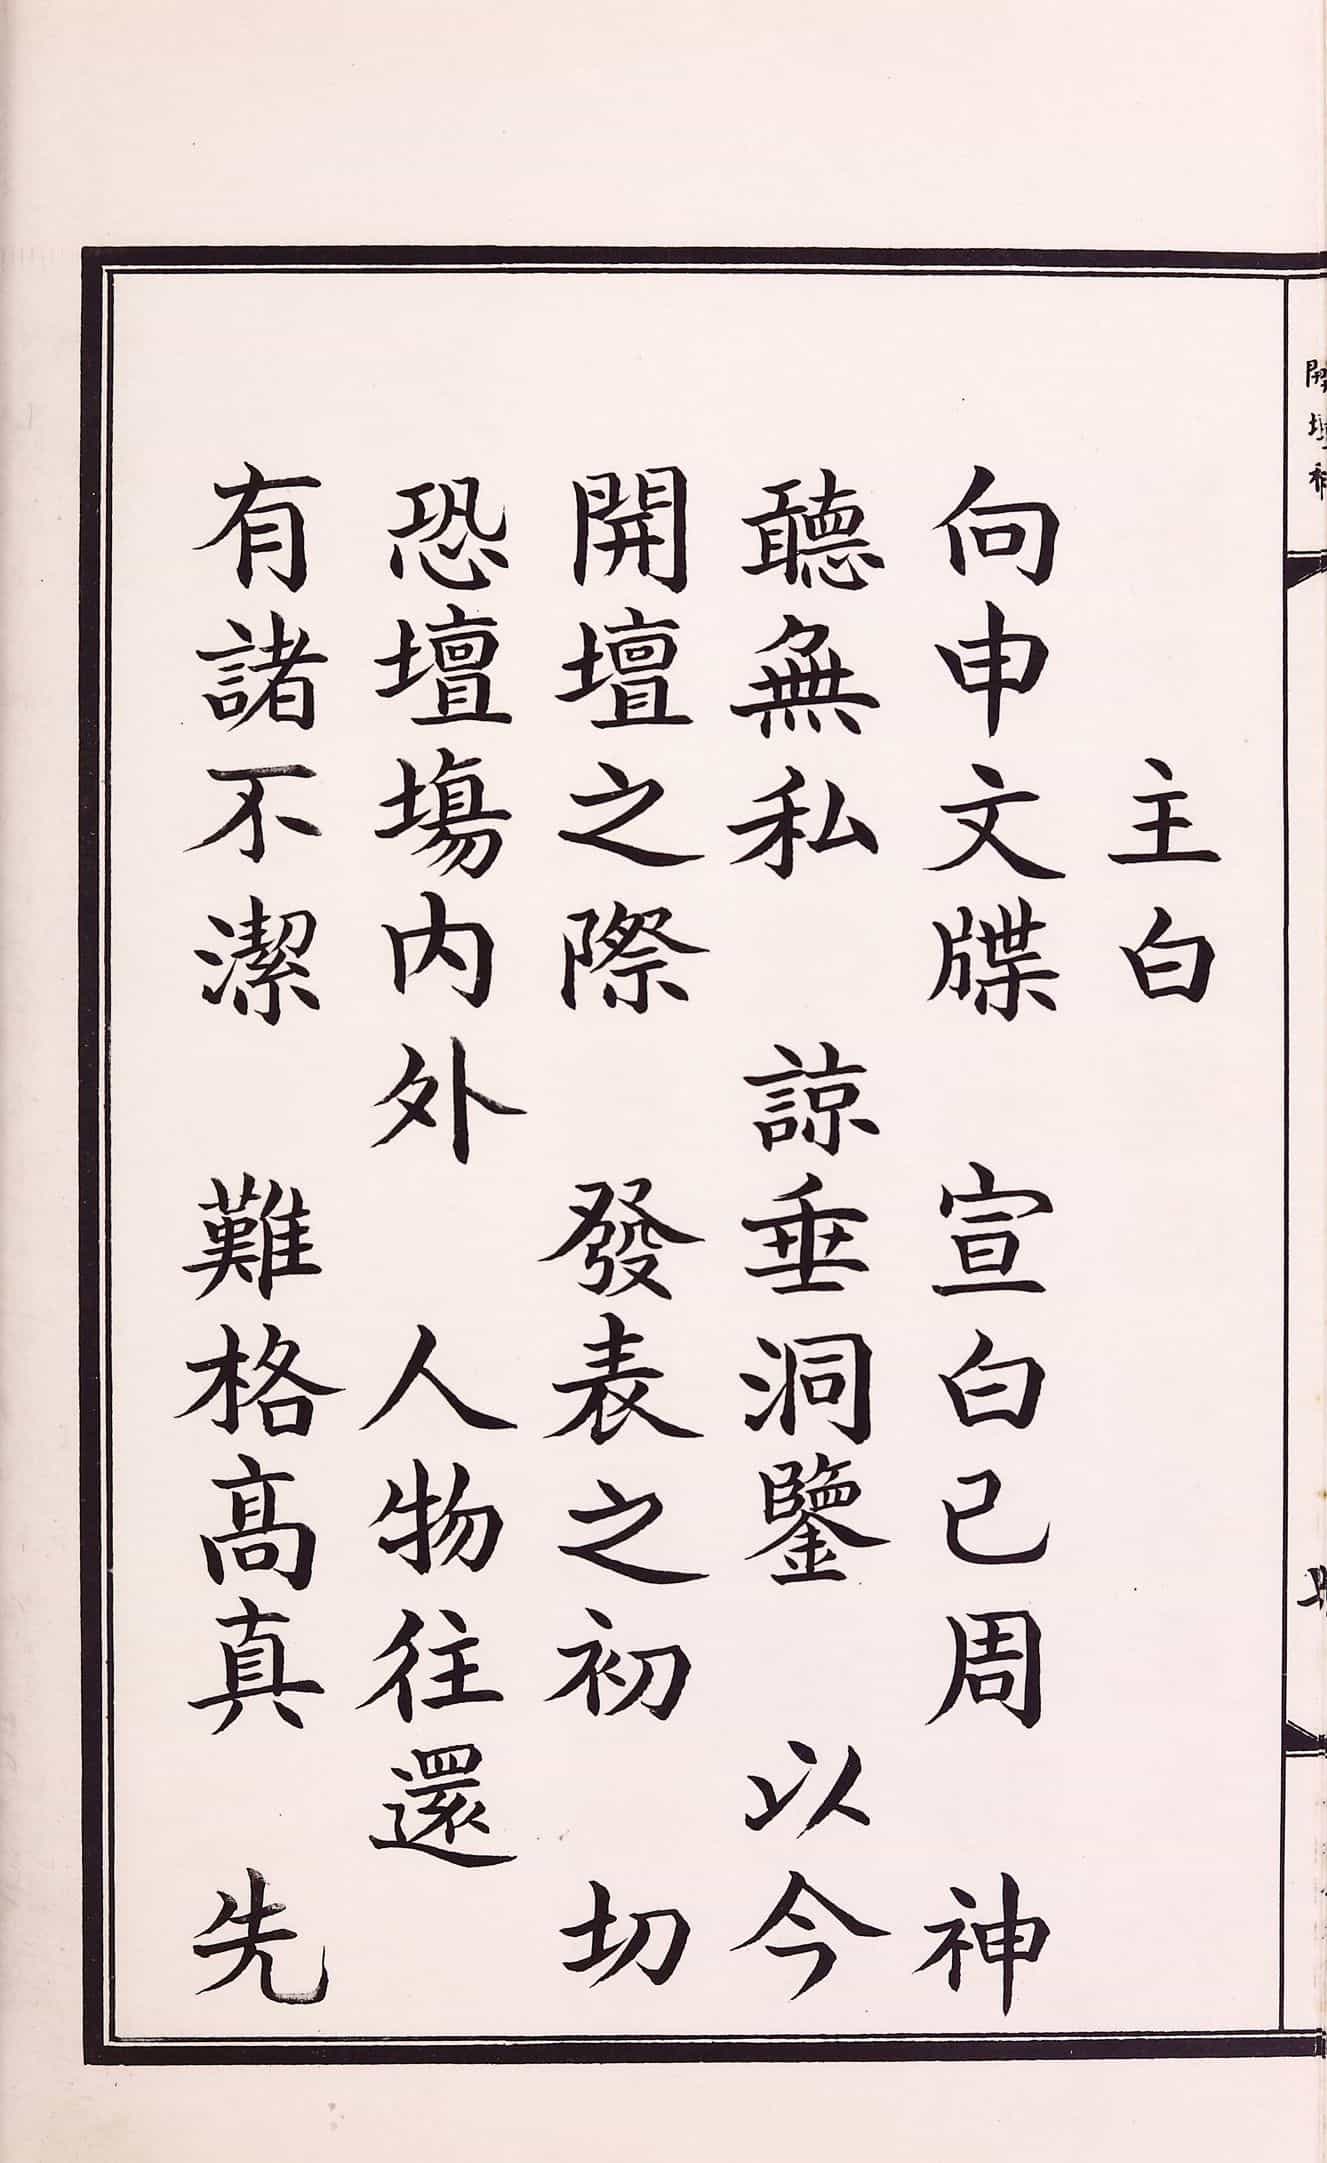 主白
向申文牒　宣白已周　神
聽無私　諒垂洞鑒　以今
開壇之際　發表之初　切
恐壇塲内外　人物往還
有諸不潔　難格髙真　先